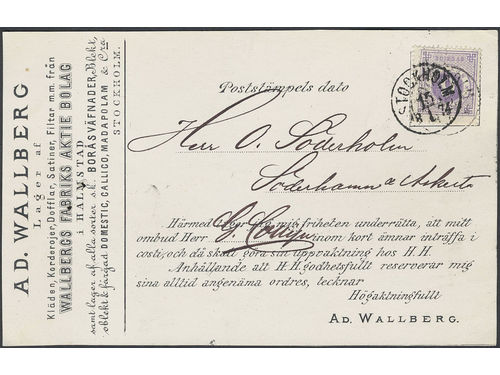 AD. WALLBERG
Lager af
Kläden, Korderojer, Dofflar, Satiner, Filtar m.m. från
WALLBERGS FABRIKS AKTIE BOLAG
i HALMSTAD
samt lager af alla sorter s.k. BORÅSVÄFNADER, Blekt,
oblekt & färgad DOMESTIC, CALLICO, MADAPOLAM & Cra
STOCKHOLM.
STOCKHOLM
15
Poststämpels dato
Herr O. Söderholm
Söderhamn a Askerö
Härmed friheten underrätta, att mitt
ombud Herr G. inom kort ämnar inträffa i
costi, och då skall göra sin uppvaktning hos H.H.
Anhållande att H.H. godhetsfullt reserverar mig
sina alltid angenäma ordres, tecknar
Högaktningsfullt
AD. WALLBERG.